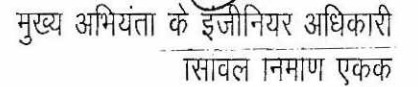 मुख्य अभियंता के इंजीनियर अधिकारी
सिविल निर्माण एकक